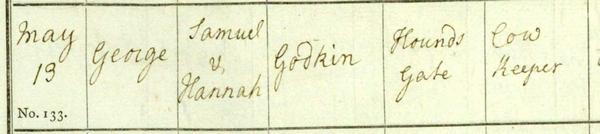 May
13
No. 133.
George
Samuel
&
Hannah
Godkin
Hounds
Gate
Cow
Keeper